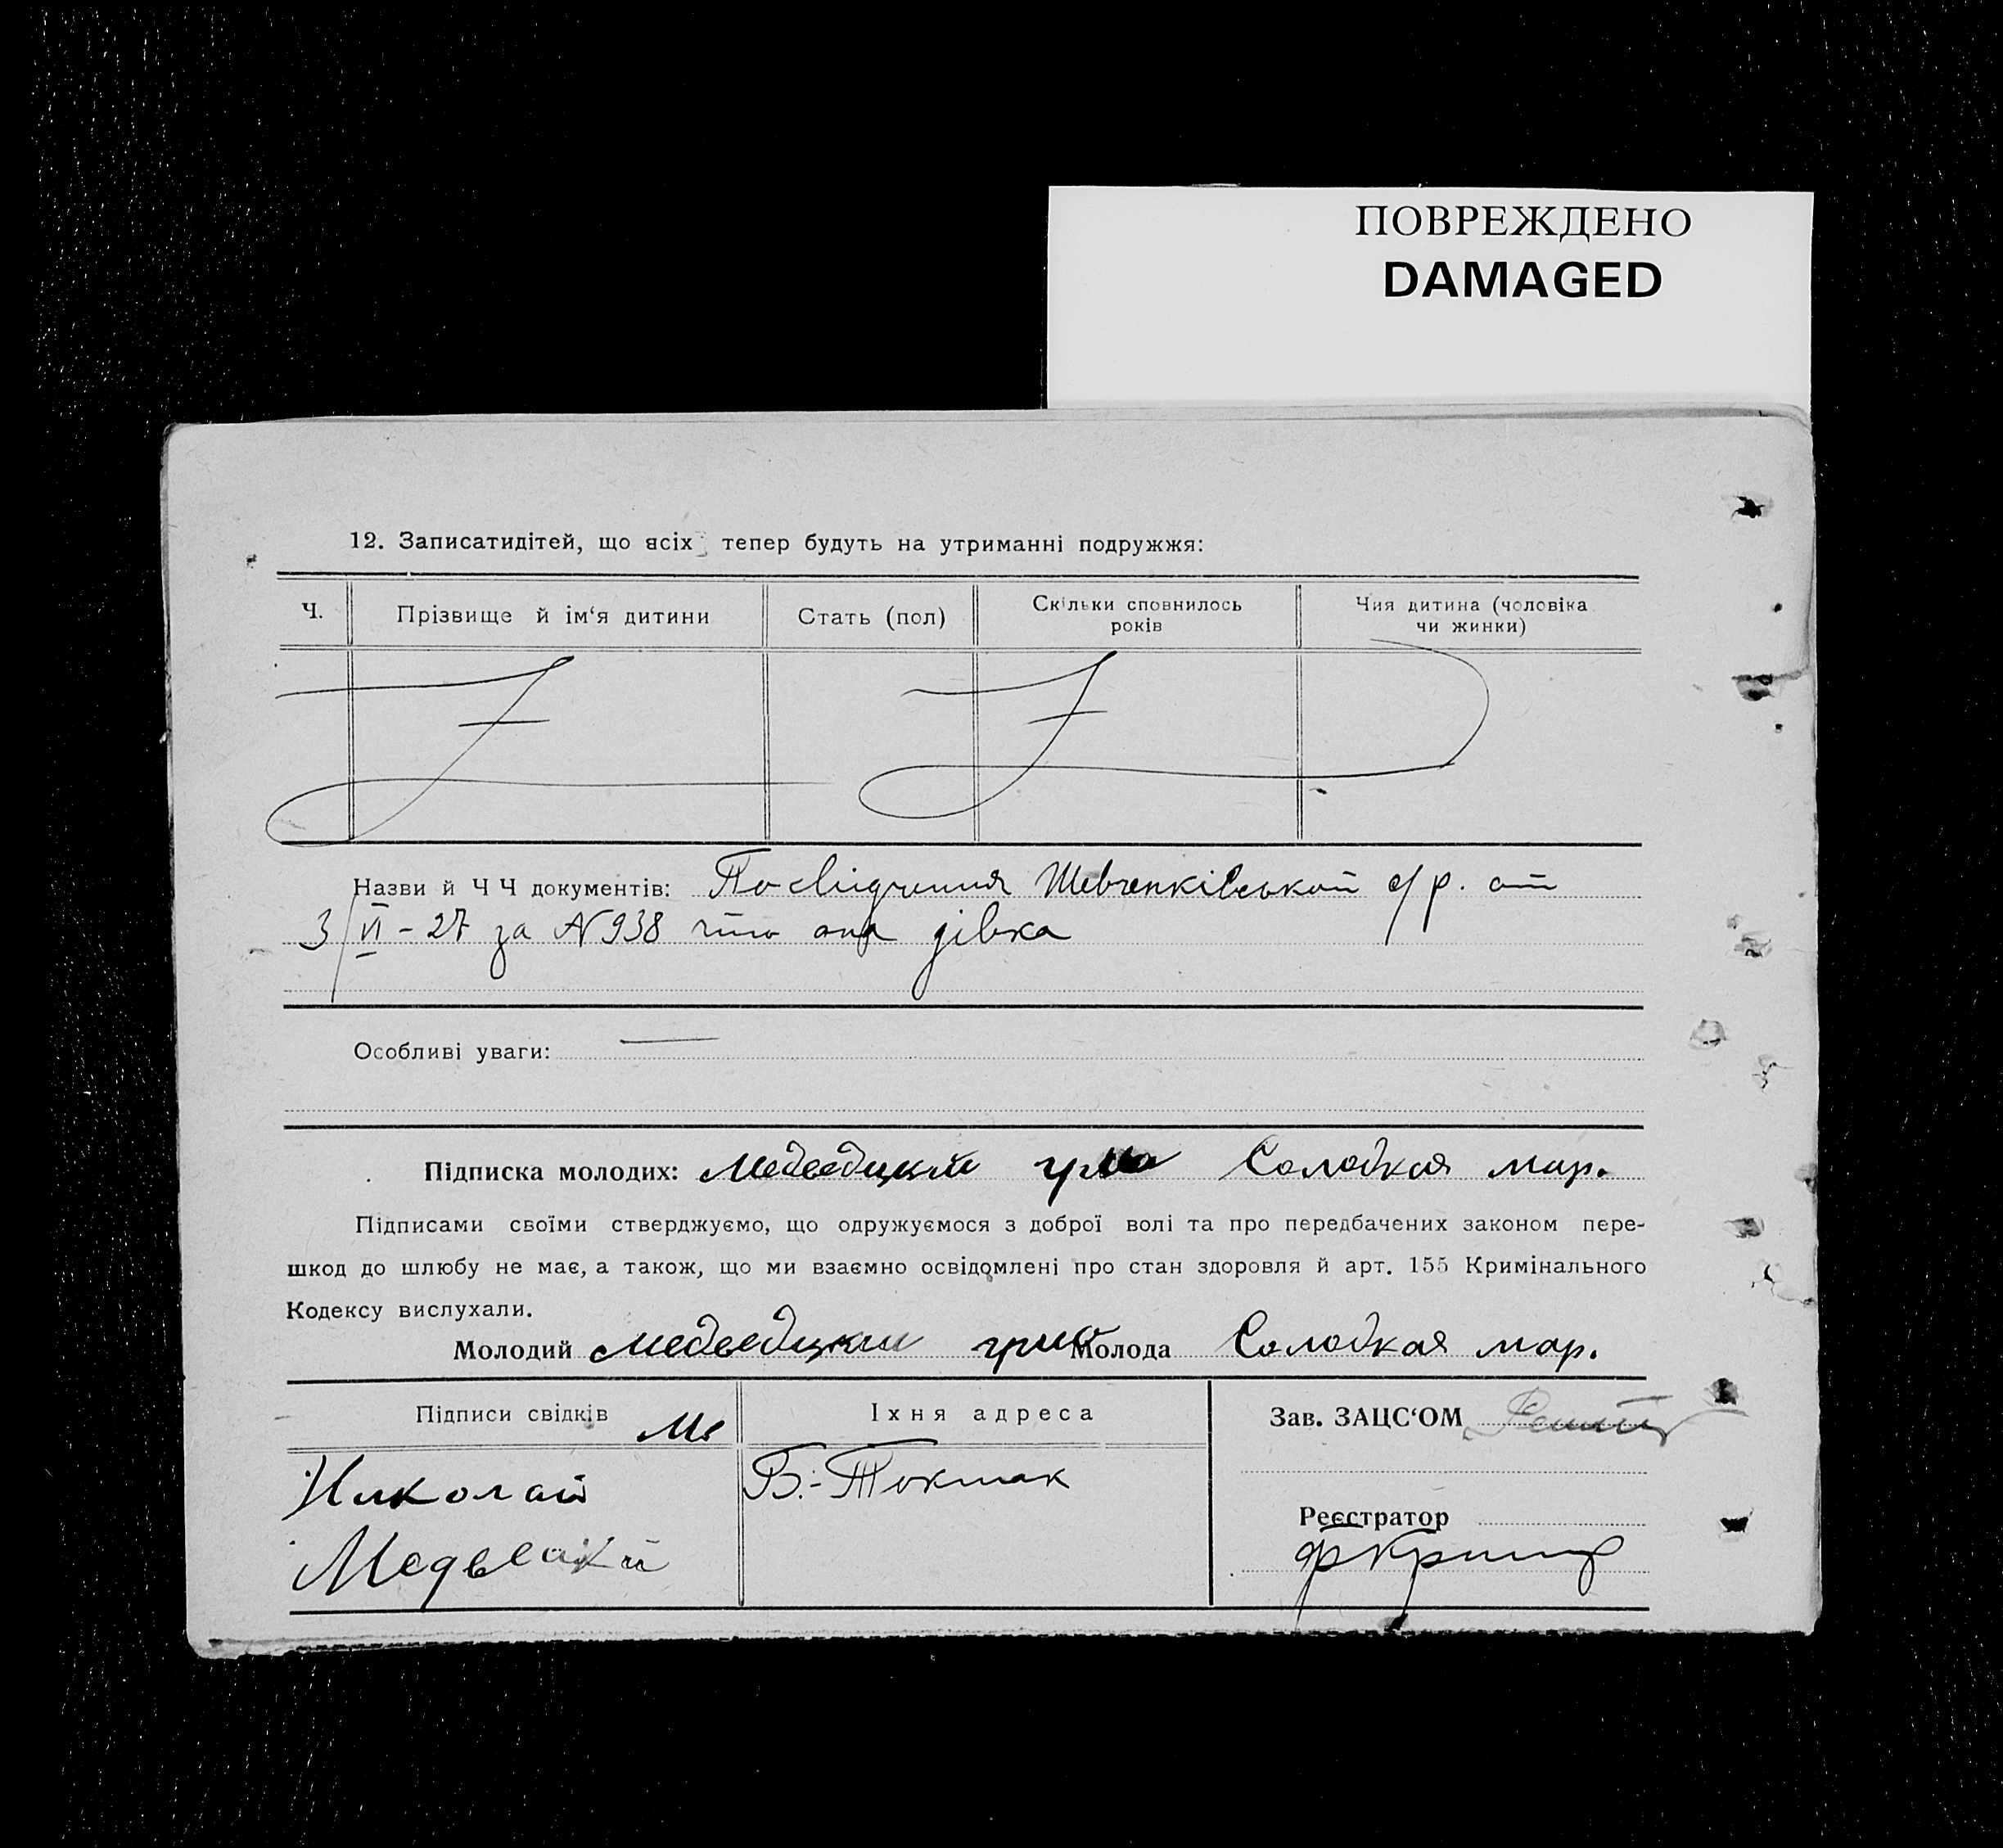 ПОВРЕЖДЕНО
DAMAGED
12. Записатидітей, що всіх тепер будуть на утриманні подружжя:
Ч. Прізвище й ім‘я дитини Стать (пол) Скільки сповнилось років Чия дитина (чоловіка чи жинки)
Назви й Ч Ч документів: Посвідчення Шевченківської с/р. от
3/VI - 27 за N 938 что она дівка
Особливі уваги: —
Підписка молодих: Медведицкий Солодкая мар.
Підписами своїми стверджуємо, що одружуємося з доброї волі та про передбачених законом пере-
шкод до шлюбу не має, а також, що ми взаємно освідомлені про стан здоровля й арт. 155 Кримінального
Кодексу вислухали.
Молодий Медведицкий григ Молода Солодкая мар.
Підписи свідків Ме Їхня адреса Зав. ЗАЦС‘ОМ
Николай Б.-Токмак
Реєстратор